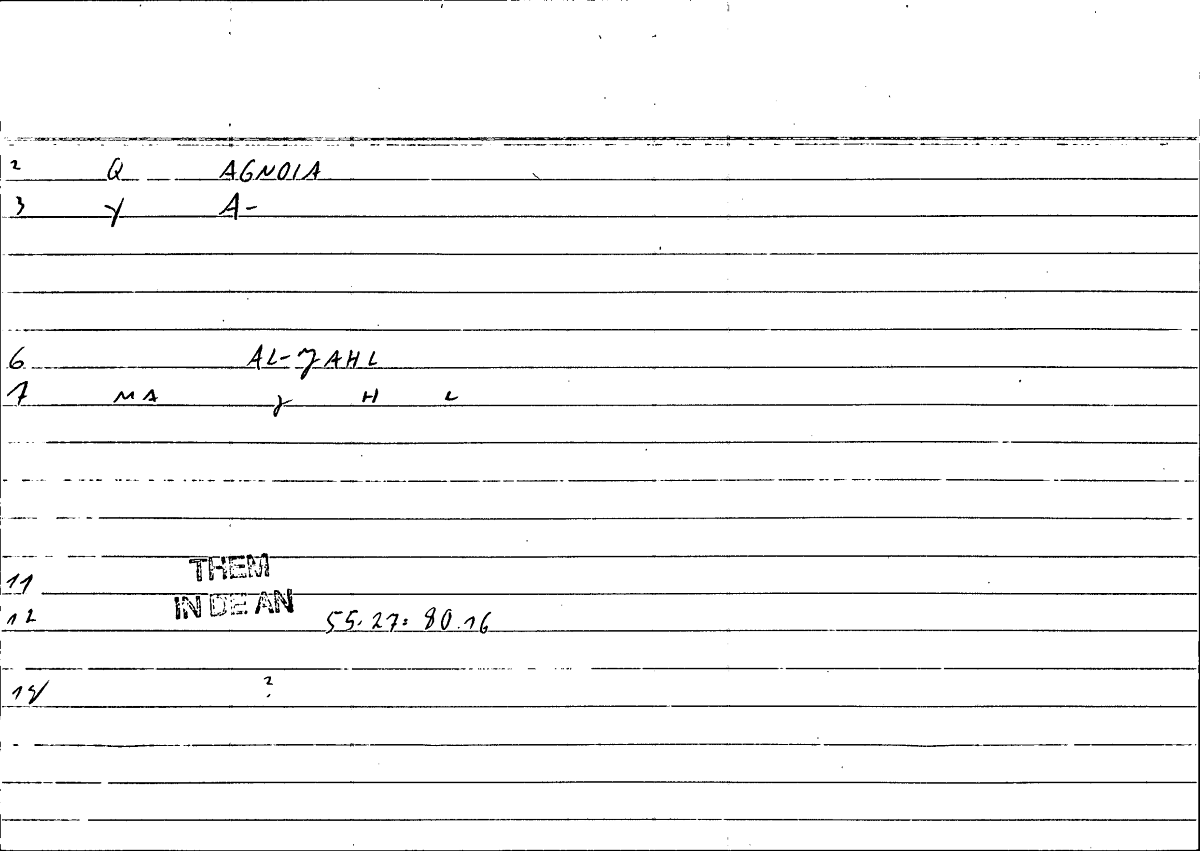 2 Q AGNOIA
3 γ A-
6 AL-JAHL
7 MA J H L
11 THEM
12 IN DE AN 55.27: 80.16
14 ?